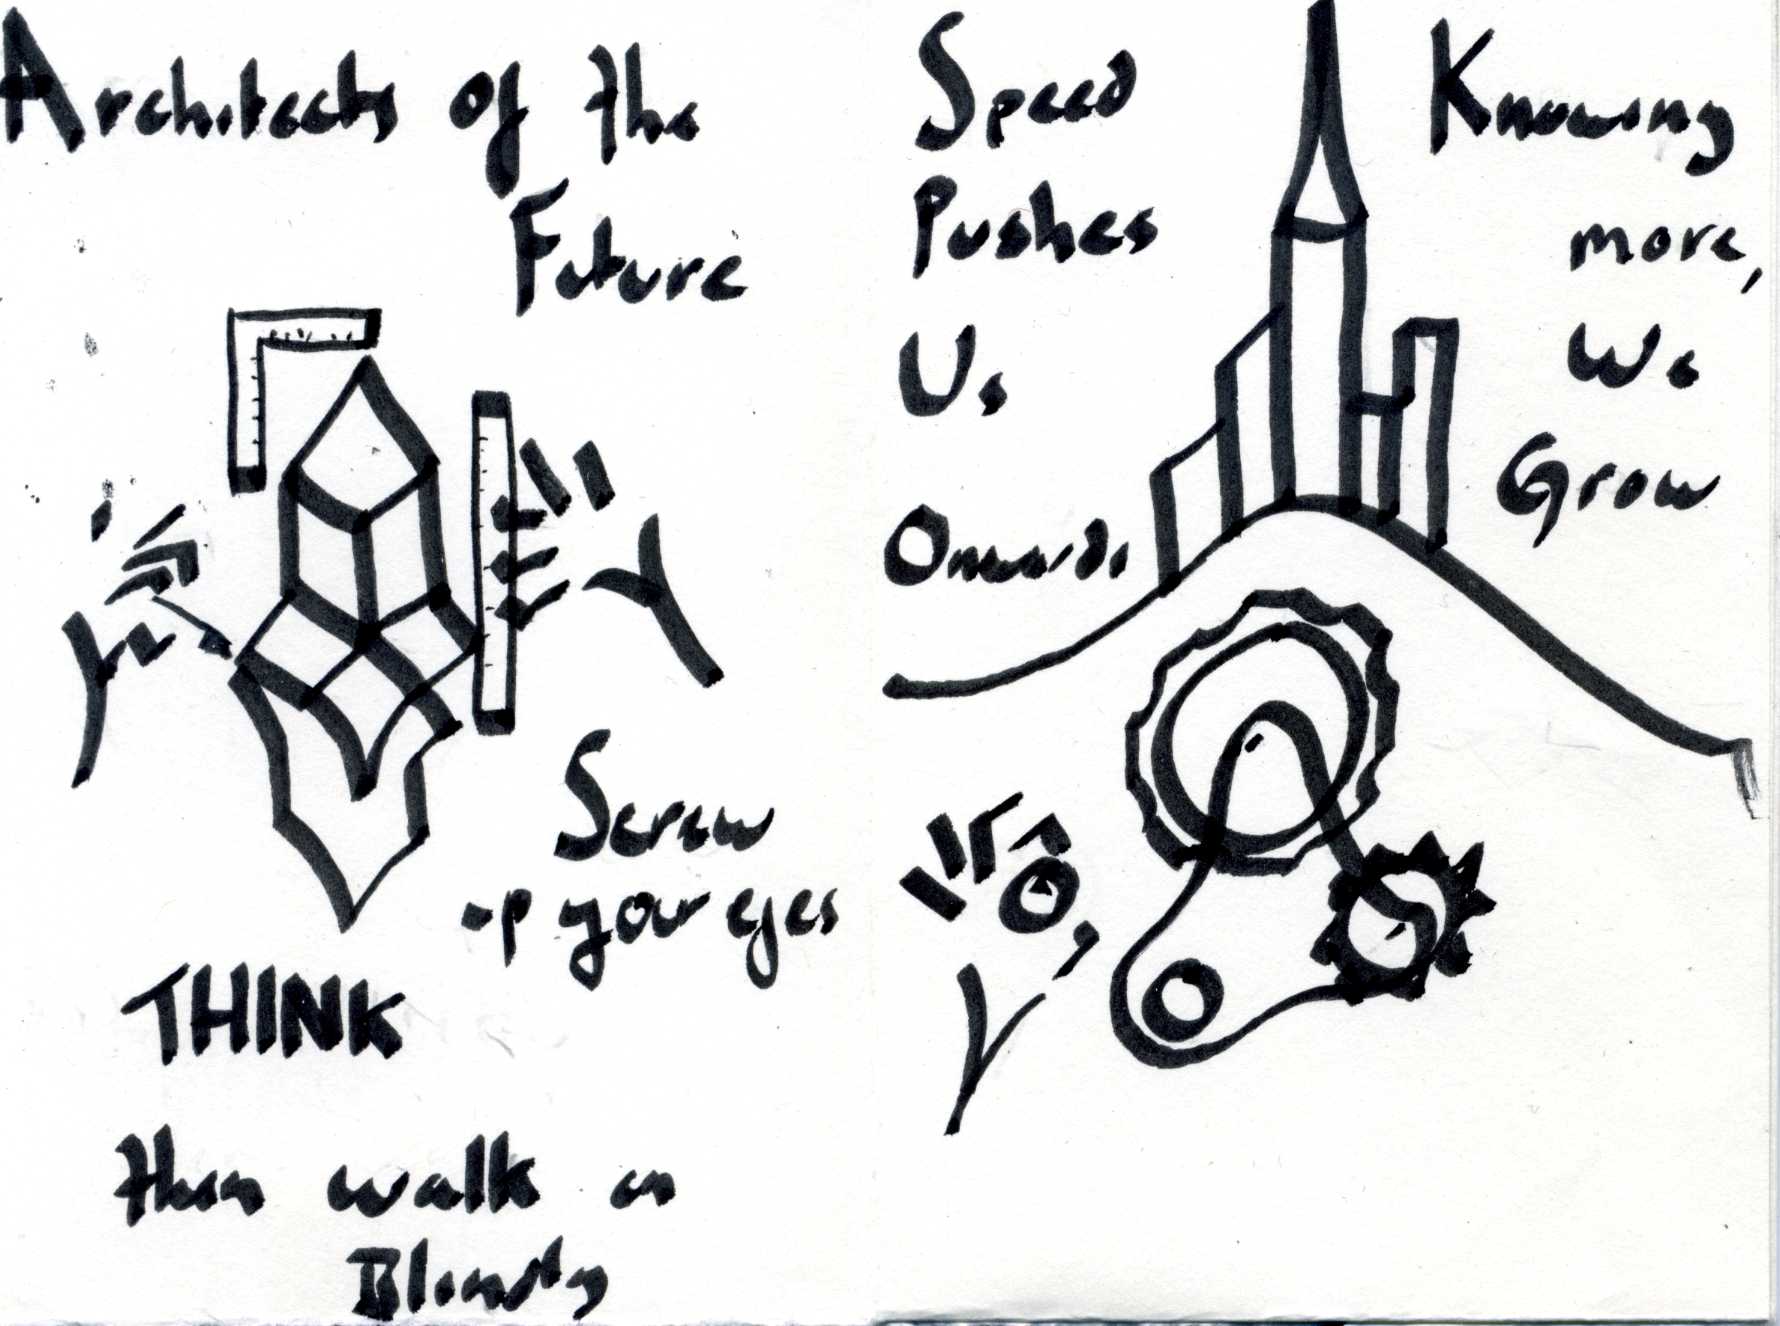 Architects of the
Future
Screw
up your eyes
THINK
then walk on
Blindly
Speed
Pushes
Us
Onwards
Knowing
more,
We
Grow